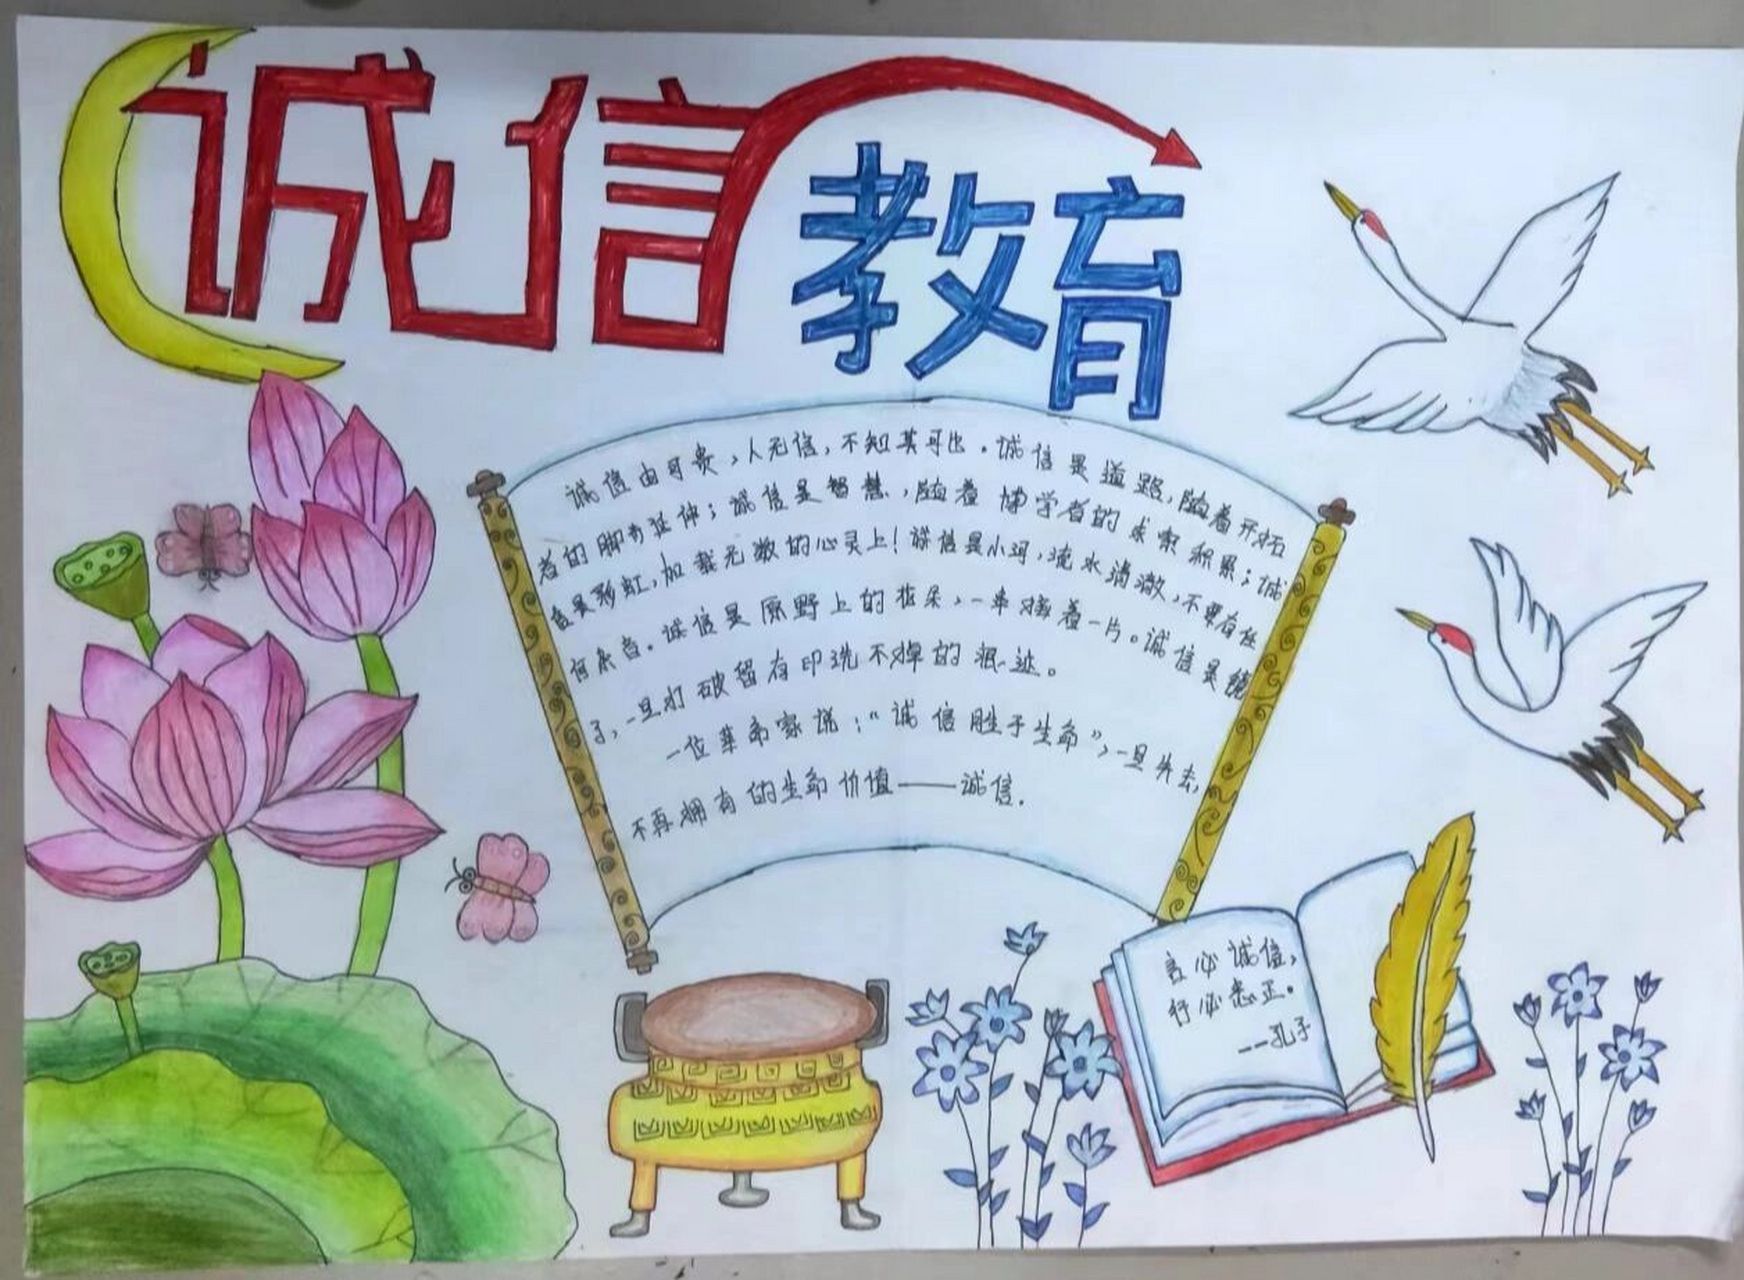 诚信教育
诚信由可贵,人无信,不知其可也.诚信是道路,随着开拓
者的脚步延伸;诚信是智慧,随着博学者的求索积累;诚
信是彩虹,加载无数的心灵上!诚信是小河,流水清澈,不要存任
何杂音.诚信是原野上的花朵,一来好着一片。诚信是镜
子,一旦打破留存印洗不掉的痕迹。
一位革命家说:“诚信胜于生命”,一旦失去,
不再拥有的生命价值——诚信.
言必诚信,
行必悉正.
--孔子